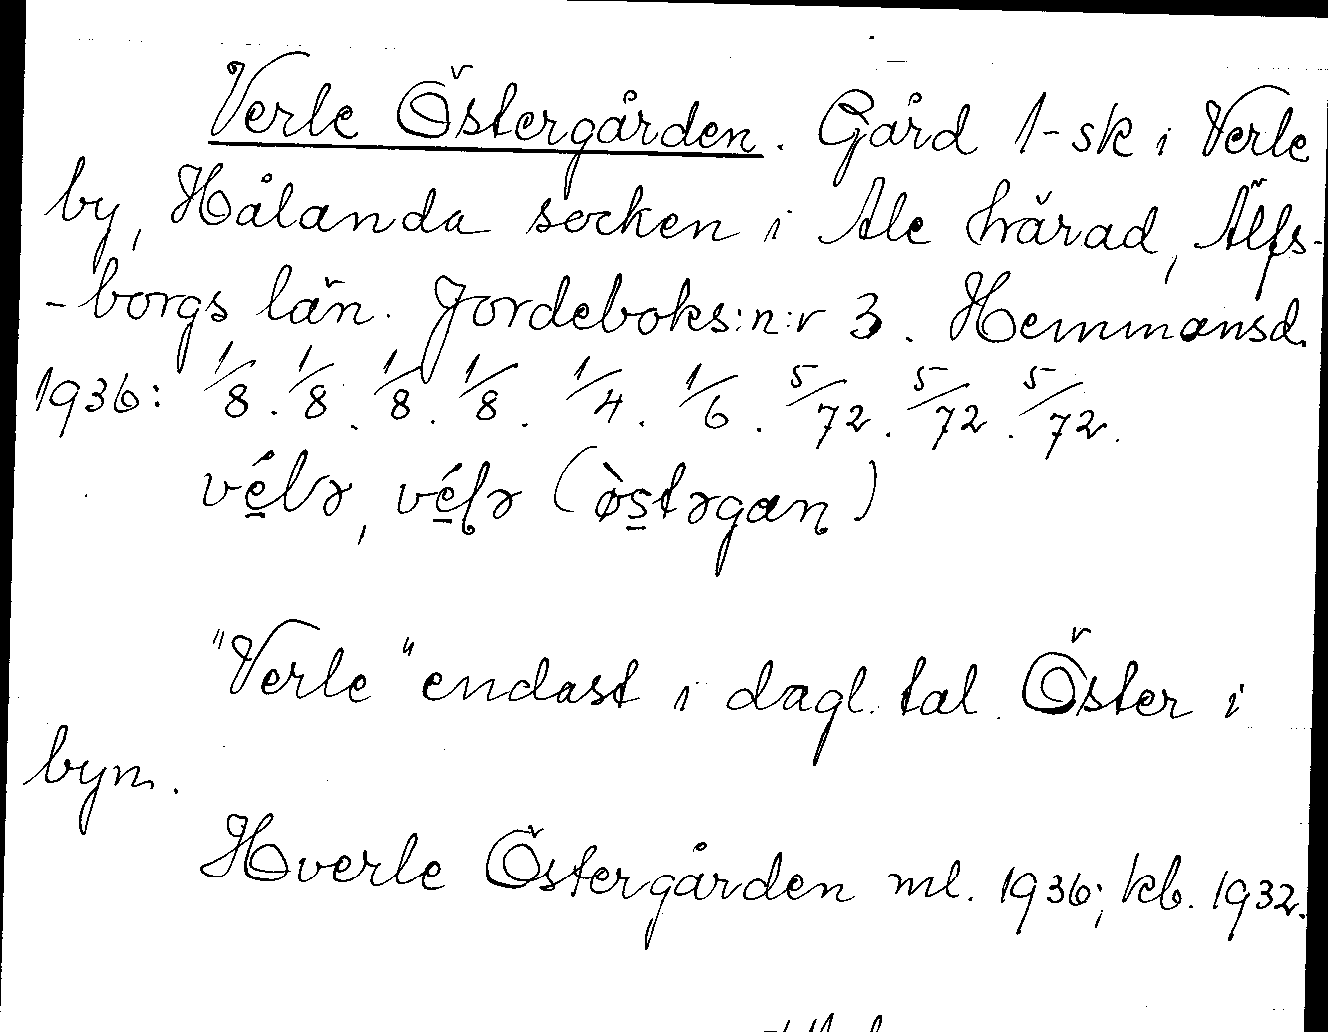 Verle Östergården. Gård 1-sk i Verle
by, Hålanda socken i Ale härad, Älfs-
-borgs län. Jordeboks:n:r 3. Hemmansd.
1936: 1/8. 1/8. 1/8. 1/8. 1/4. 1/6. 5/72. 5/72. 5/72.
vé̱lə, vé̱ɭə (ò̱stəgan)
"Verle" endast i dagl. tal. Öster i
byn.
Hverle Östergården ml. 1936; kb. 1932.